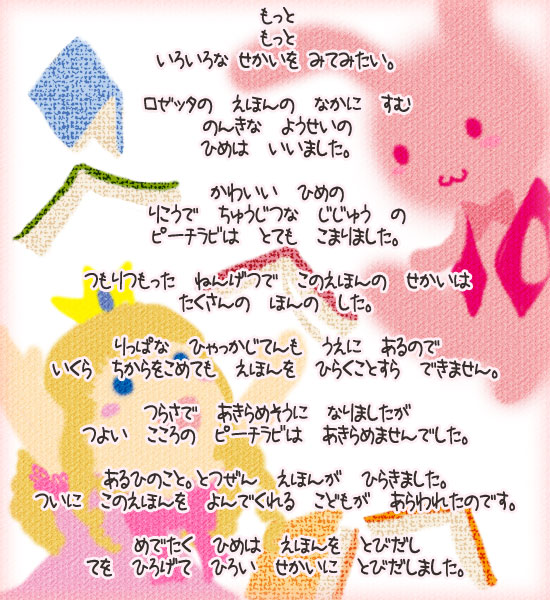 もっと
もっと
いろいろな せかいを みてみたい。
ロゼッタの えほんの なかに すむ
のんきな ようせいの
ひめは いいました。
かわいい ひめの
りこうで ちゅうじつな じじゅう の
ピーチラビは とても こまりました。
つもりつもった ねんげつで このえほんの せかいは
たくさんの ほんの した。
りっぱな ひゃっかじてんも うえに あるので
いくら ちからをこめても えほんを ひらくことすら できません。
つらさで あきらめそうに なりましたが
つよい こころの ピーチラビは あきらめませんでした。
あるひのこと。とつぜん えほんが ひらきました。
ついに このえほんを よんでくれる こどもが あらわれたのです。
めでたく ひめは えほんを とびだし
てを ひろげて ひろい せかいに とびだしました。